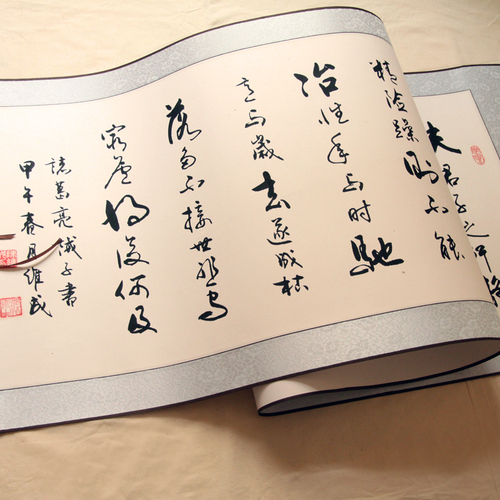 夫君子之行
精险躁则不能
冶性年与时馳
意与歲去遂成枯
落多不接世悲守
穷庐将复何及
诸葛亮诫子書
甲午春月維武